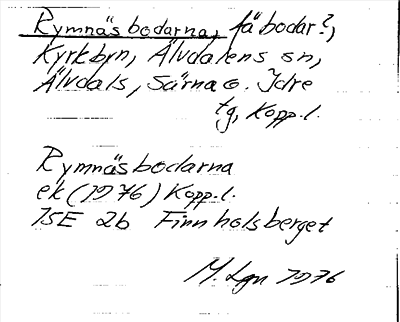 Rymnäsbodarna, fäbodar?,
Kyrkbyn, Älvdalens sn,
Älvdals, Särna o. Idre
tg, Kopp.l.
Rymnäsbodarna
ek (1976) Kopp.l.
15E 2b Finnholsberget
M. Lgn 1976